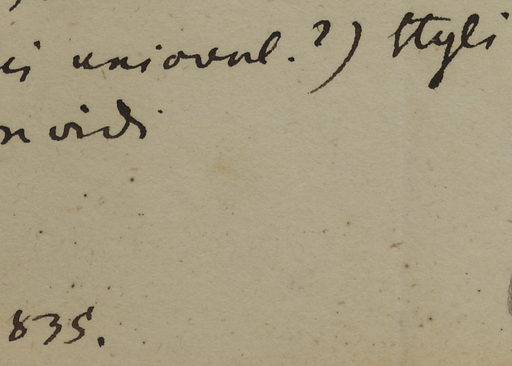 is uniovul.?) Styli
n vidi
835.